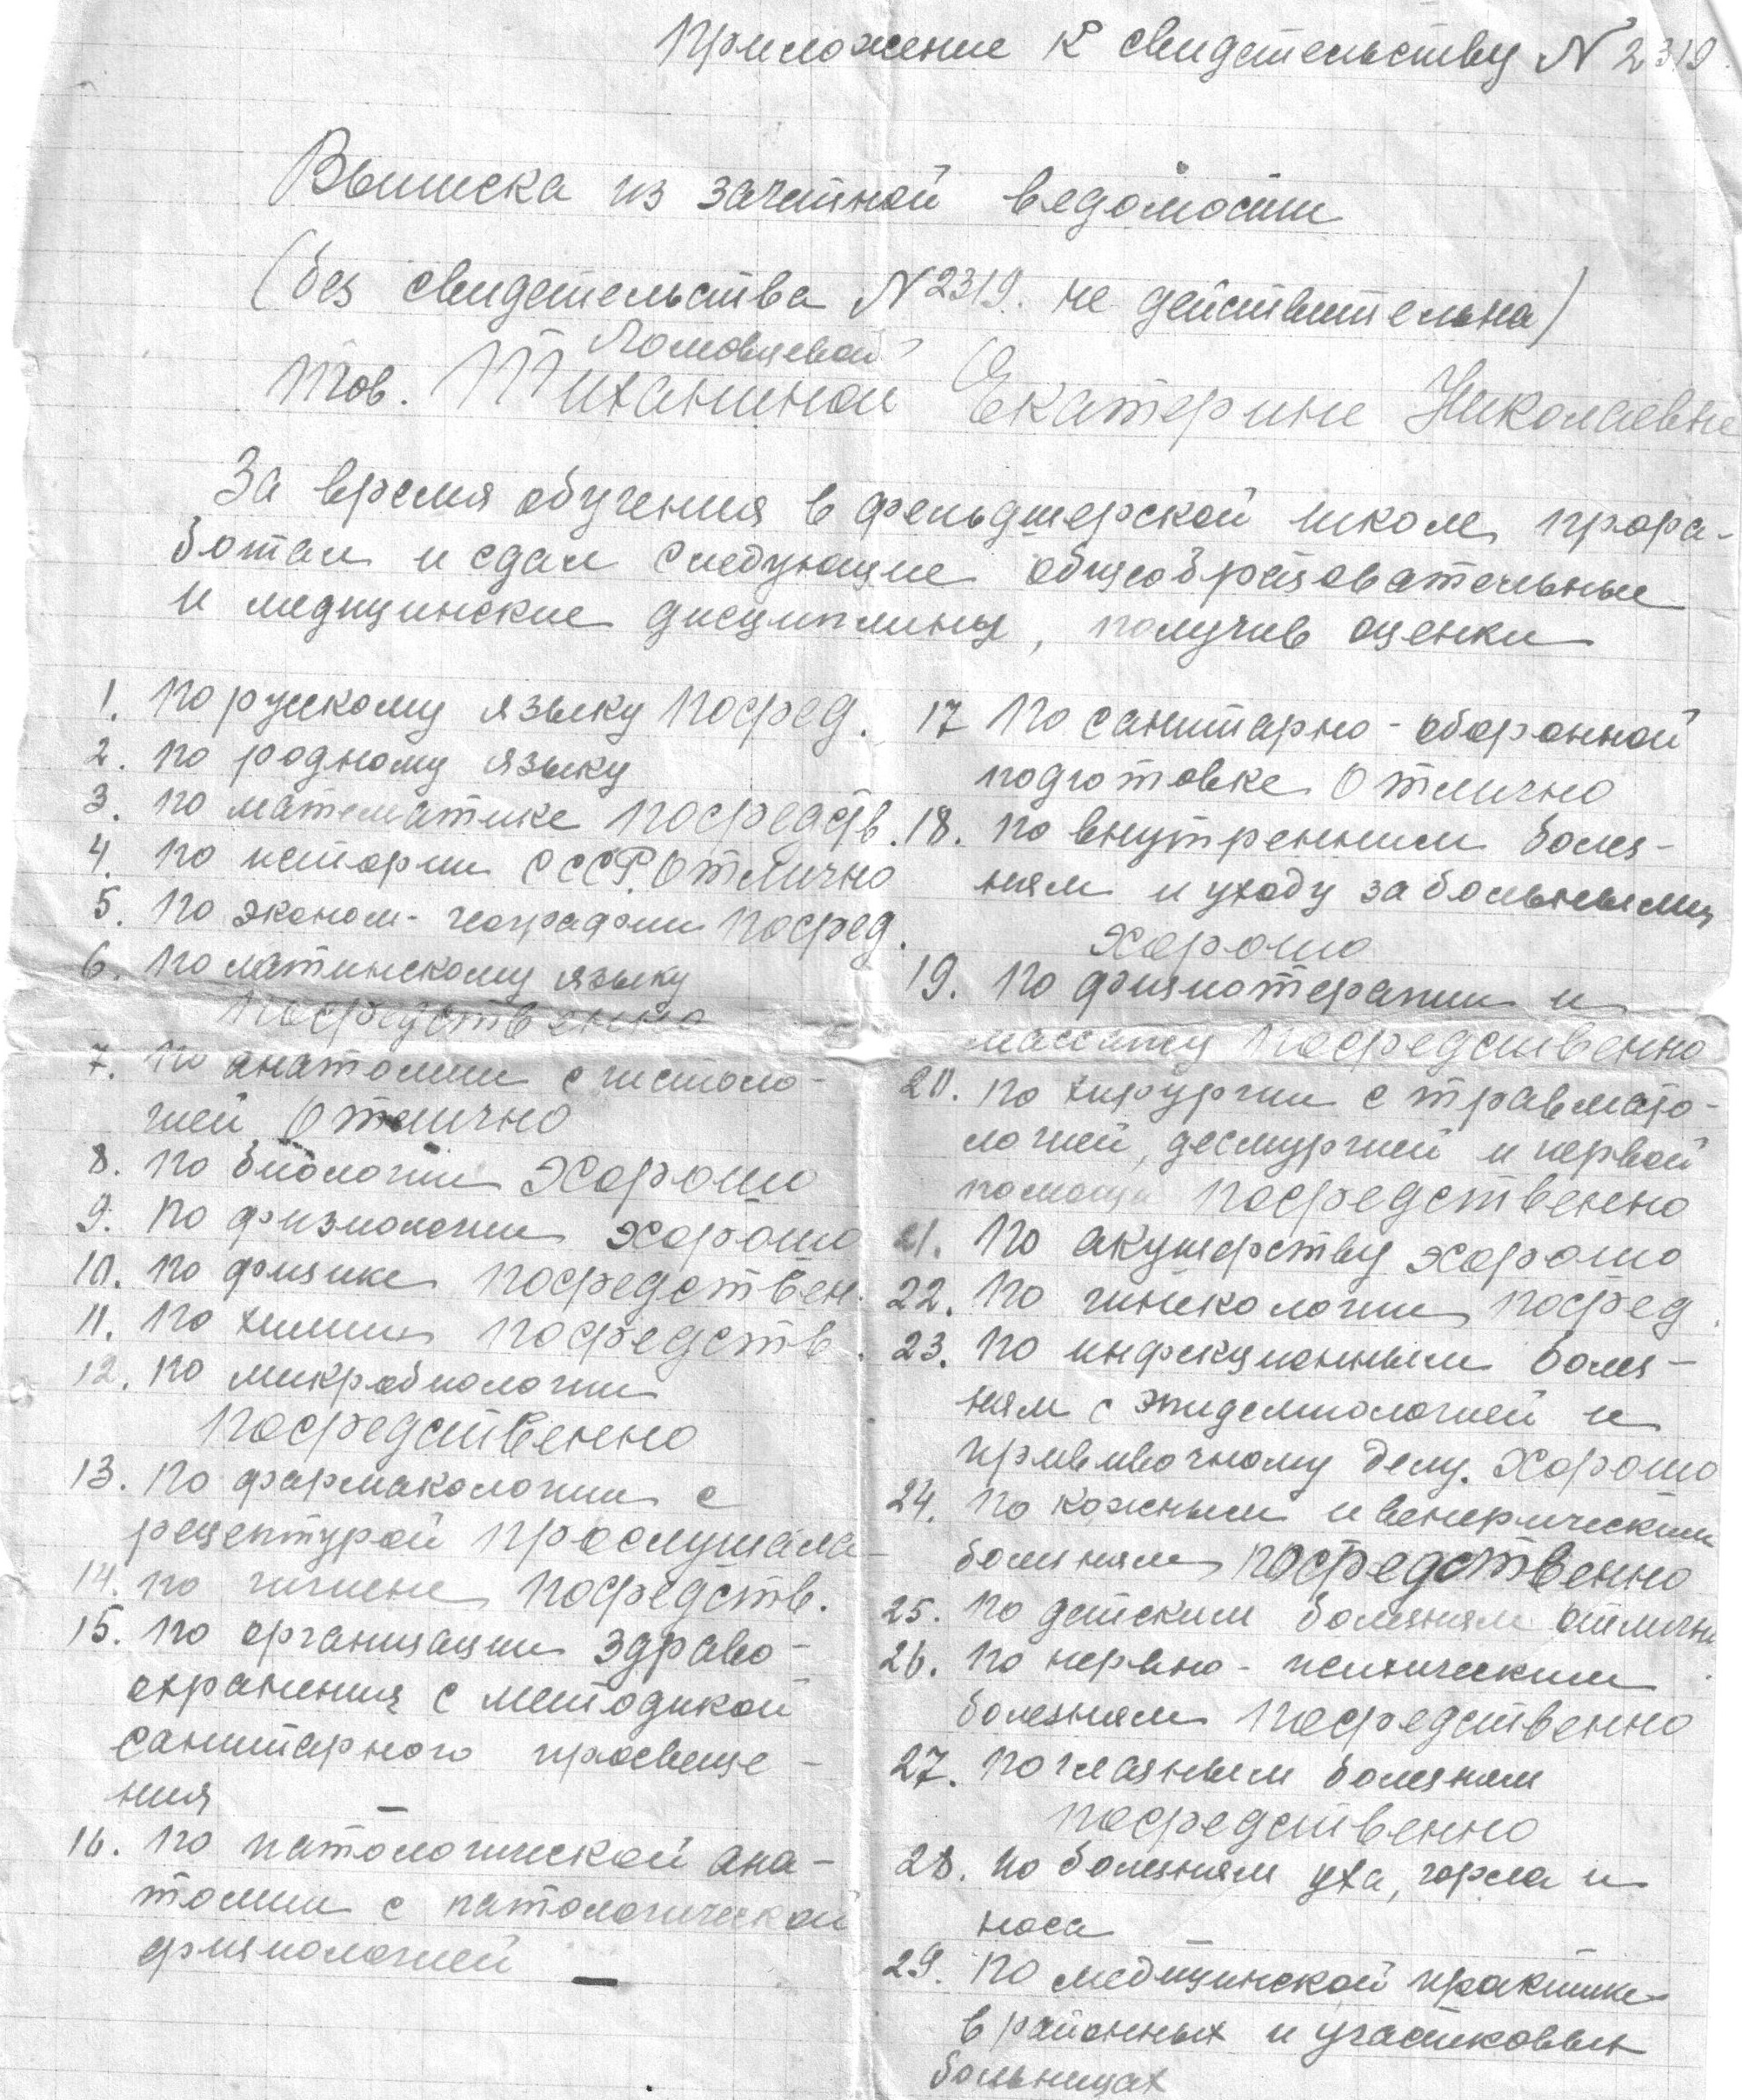 Приложение к свидетельству N 2319.
Выписка из зачетной ведомости
(без свидетельства N 2319. не действительна)
Ломовцевой
Тов. Тиханиной Екатерине Николаевне
За время обучения в фельдшерской школе, прора-
ботал и сдал следующие общеобразовательные
и медицинские дисциплины, получив оценки
1. по рускому языку посред.
2. по родному языку
3. по математике посредств.
4. по истории СССР. Отлично
5. по эконом- географии посред.
6. по латинскому языку
посредственно
7. по анатомии с гистоло-
гией Отлично
8. по биологии Хорошо
9. по физиологии хорошо
10. по физике посредствен.
11. по химии посредств.
12. по микробиологии
посредственно
13. по фармакологии с
рецептурой прослушала
14. по гигиене посредств.
15. по организации здраво-
охранения с методикой
санитарного просвеще-
ния —
16. по патологической ана-
томии с патологической
физиологией —
17 по санитарно-оборонной
подготовке Отлично
18. по внутренним болез-
ням и уходу за больными
хорошо
19. по физиотерапии и
массажу посредственно
20. по хирургии с травмато-
логией, десмургией и первой
помощи посредственно
21. по акушерству хорошо
22. по гинекологии посред.
23. по инфекционным болез-
ням с эпидемиологией и
прививочному делу. Хорошо
24. по кожным и венерическим
болезням посредственно
25. по детским болезням отлично
26. по нервно-психическим
болезням посредственно
27. по глазным болезням
посредственно
28. по болезням уха, горла и
носа
29. по медицинской практике
в районных и участковых
больницах